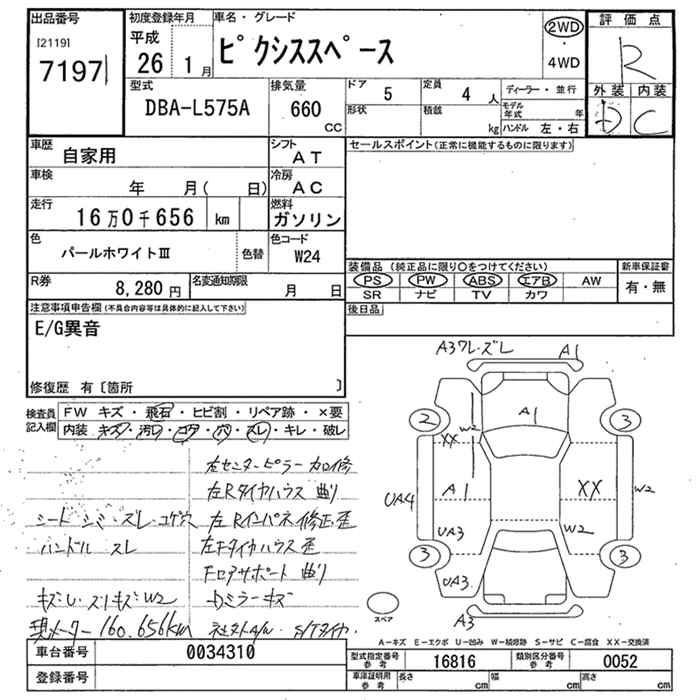 出品番号
[2119]
7197
初度登録年月
平成
26 1月
車名・グレード
ピクシススペース
2WD
・
4WD
評価点
R
外装 内装
D C
型式
DBA-L575A
排気量
660
CC
ドア
5
定員
4 人
形状
積載
kg
ディーラー・並行
モデル
年式 年
ハンドル 左・右
車歴
自家用
シフト
AT
車検
年 月( 日)
冷房
AC
走行
16万0千656 km
燃料
ガソリン
色
パールホワイトⅢ
色替
色コード
W24
R券
8,280 円
名変通知期限
月 日
セールスポイント(正常に機能するものに限ります)
装備品 (純正品に限り○をつけてください)
PS PW ABS エアB AW
SR ナビ TV カワ
新車保証書
有・無
後日品
注意事項申告欄(不具合内容等は具体的に記入して下さい)
E/G異音
修復歴 有〔箇所 〕
検査員
記入欄
FW キズ・飛石・ヒビ割・リペア跡・×要
内装 キズ・汚レ・コゲ・穴・スレ・キレ・破レ
左センターピラー 加修
左Rタイヤハウス 曲り
シート シミ・スレ・コゲ穴
左Rインパネ 修正歪
ハンドル スレ
左Fタイヤハウス 歪
Fロアサポート 曲り
キズU・スリキズ W2
Dミラーキズ
現メーター 160.656km
社外A/W S/Tタイヤ
A3ワレ・ズレ
A1
2
3
A1
W2
XX
UA4
A1
XX
W2
UA3
W2
3
3
UA3
A3
スペア
A－キズ E－エクボ U－凹み W－補修跡 S－サビ C－腐食 XX－交換済
車台番号
0034310
登録番号
型式指定番号
参考
16816
類別区分番号
参考
0052
車庫証明用
参考
長さ cm
幅 cm
高さ cm